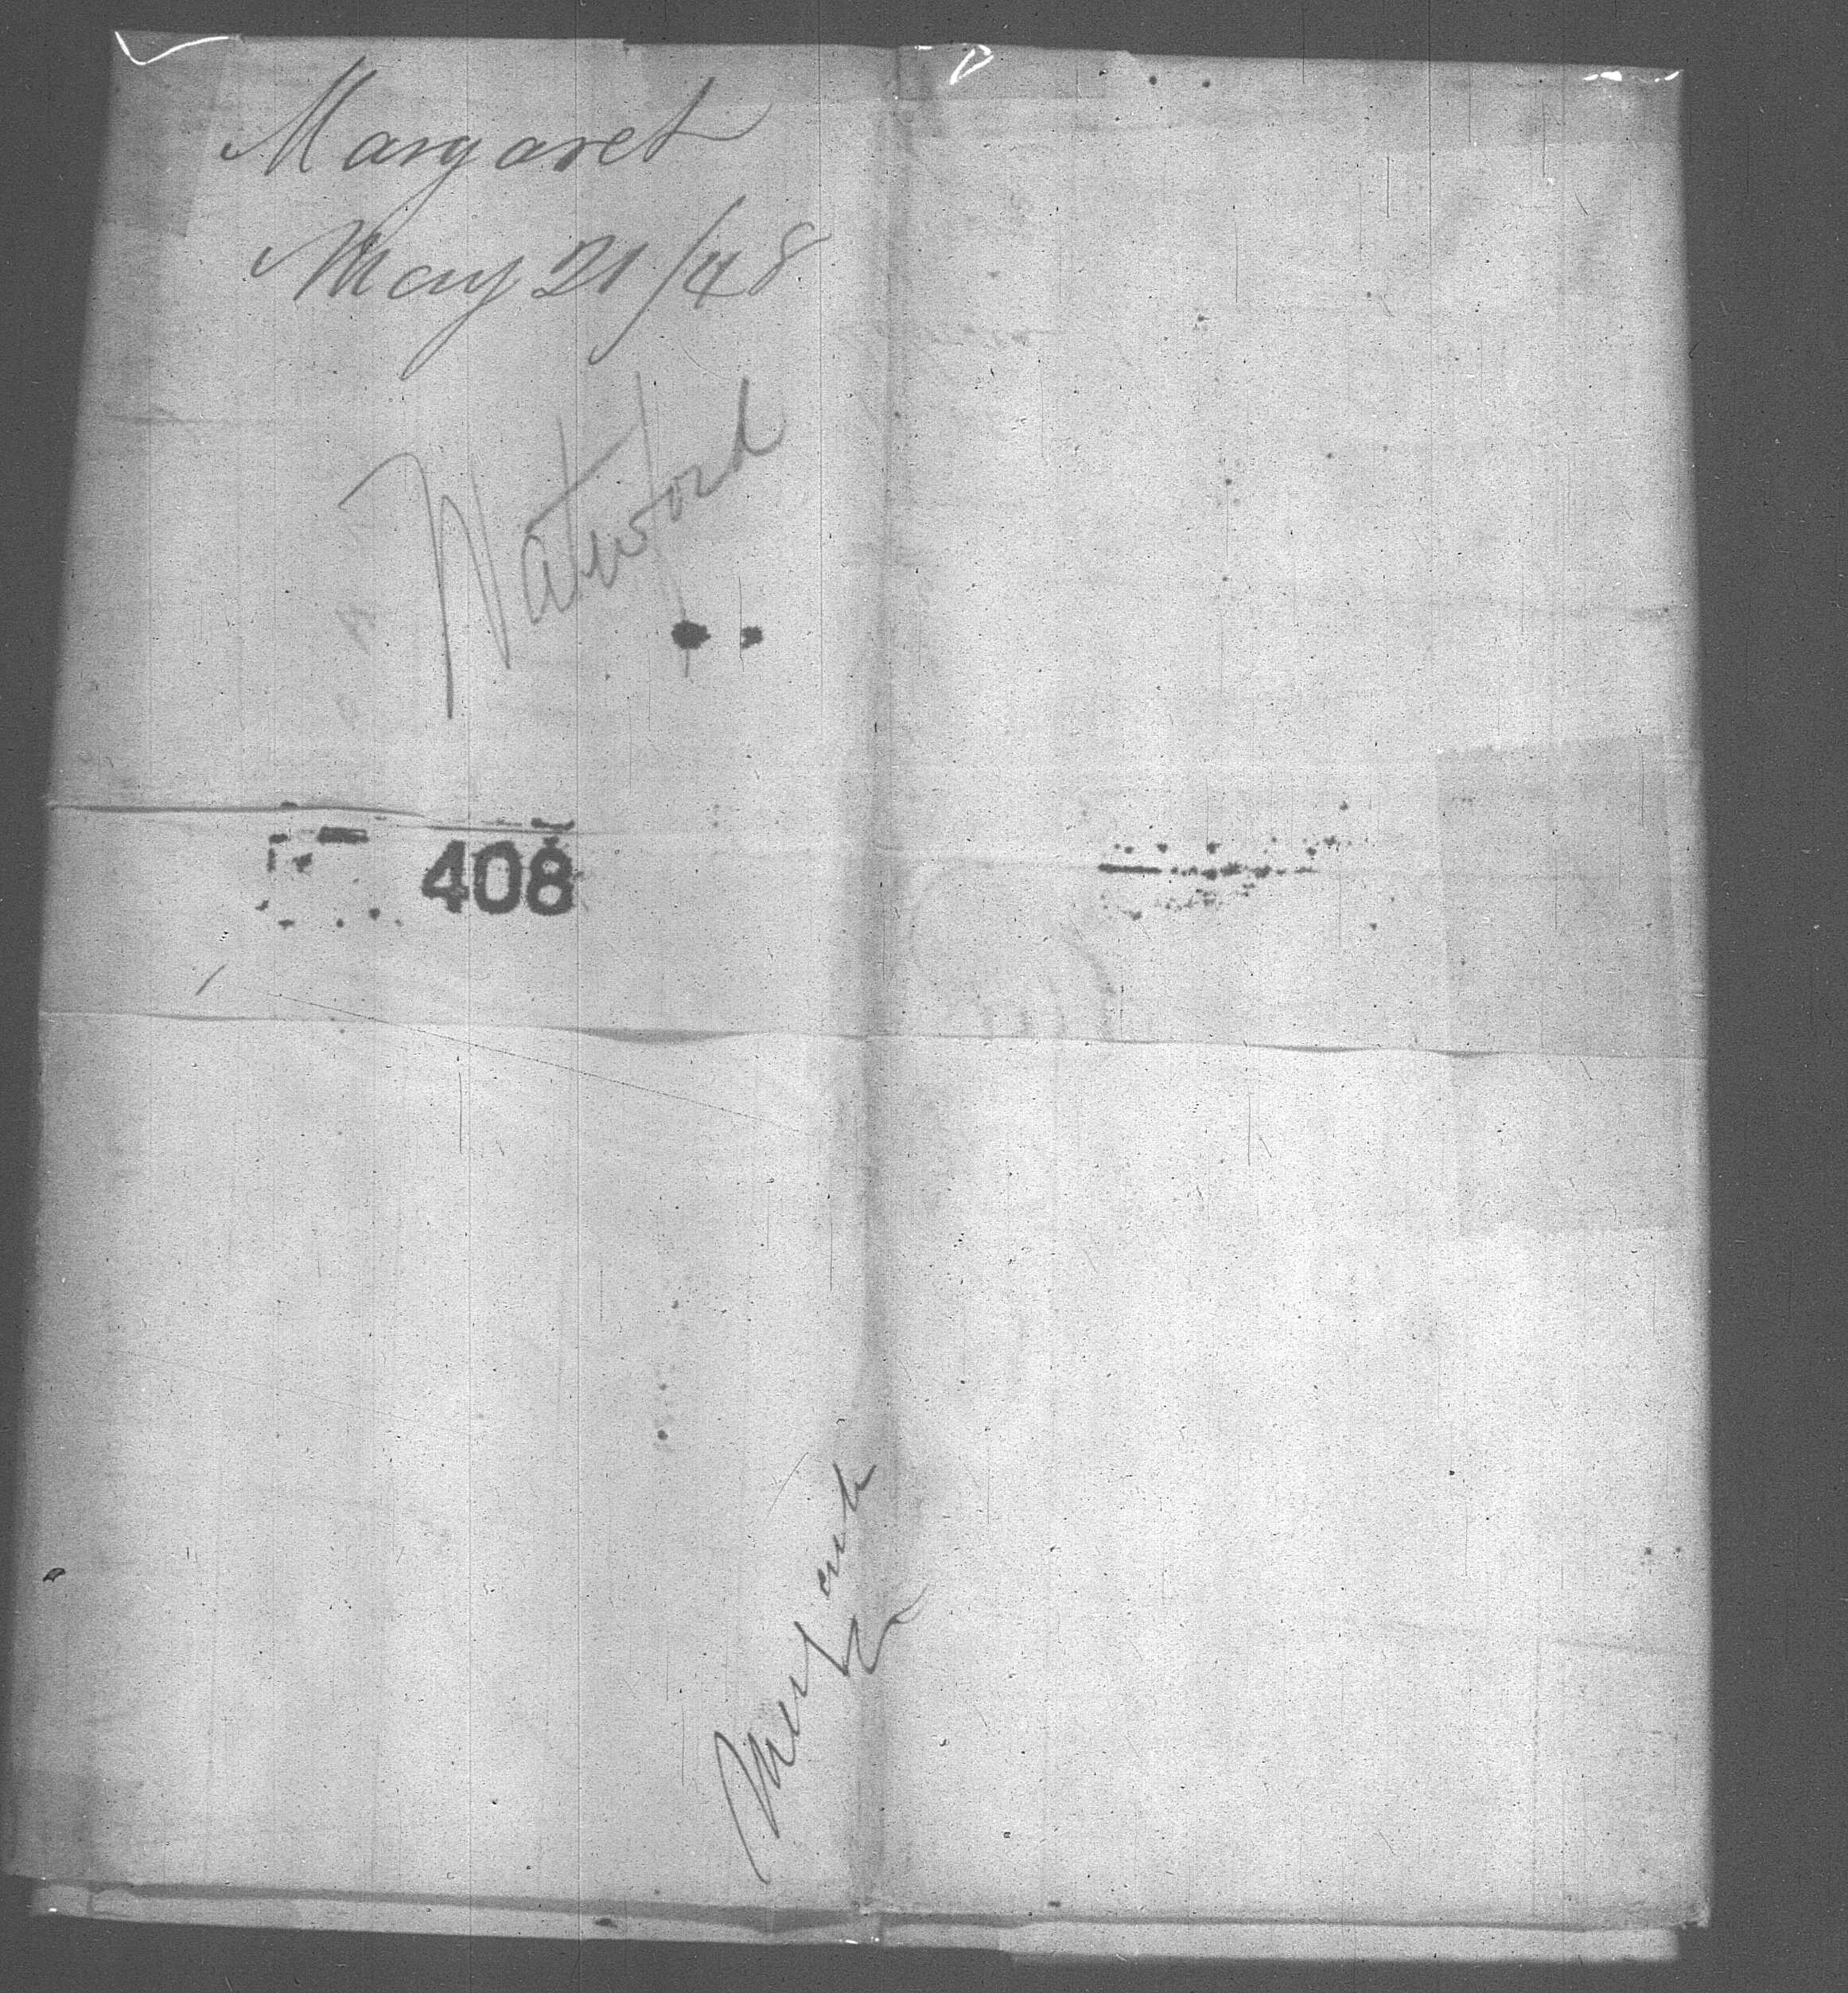 Margaret
May 21/48
Waterford
408